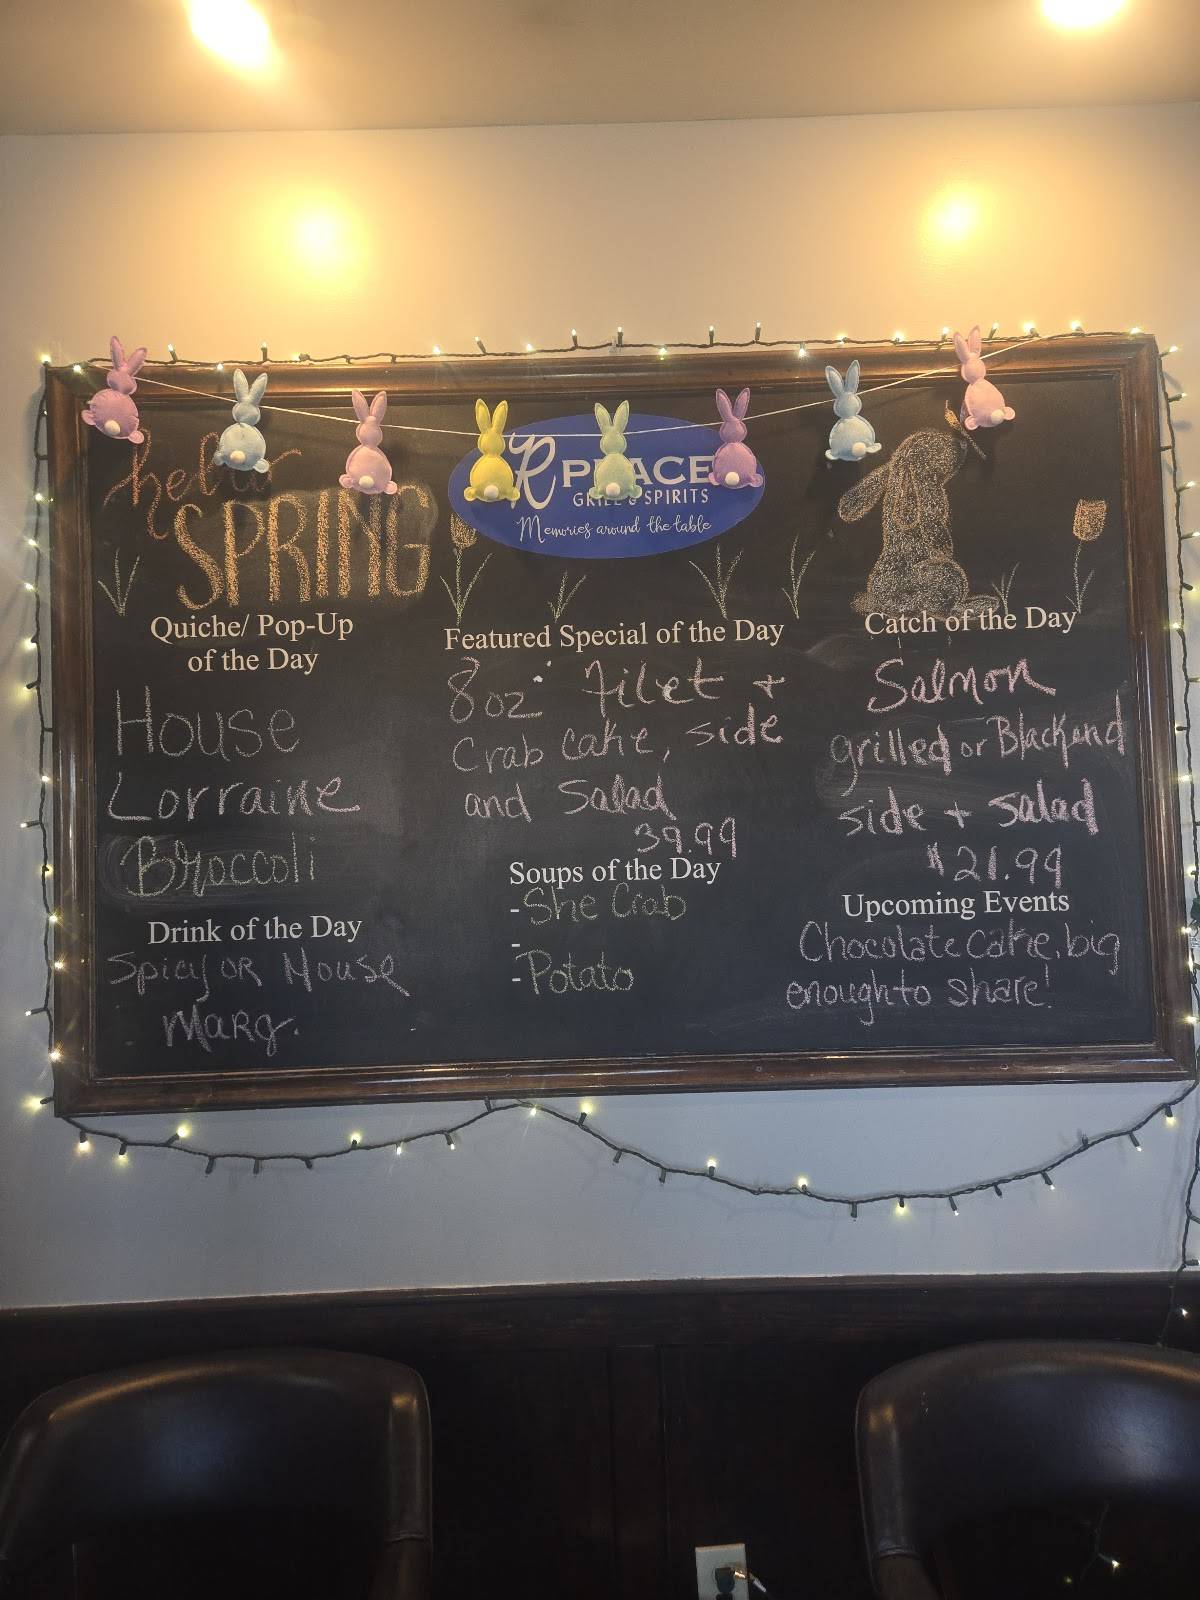 hello
SPRING
R PLACE
GRILL & SPIRITS
Memories around the table
Quiche/ Pop-Up
of the Day
House
Lorraine
Broccoli
Drink of the Day
Spicy OR House
Marg.
Featured Special of the Day
8oz Filet +
Crab cake, side
and Salad
39.99
Soups of the Day
-She Crab
-
-Potato
Catch of the Day
Salmon
grilled or Blackend
side + salad
$21.99
Upcoming Events
Chocolate Cake, big
enough to share!